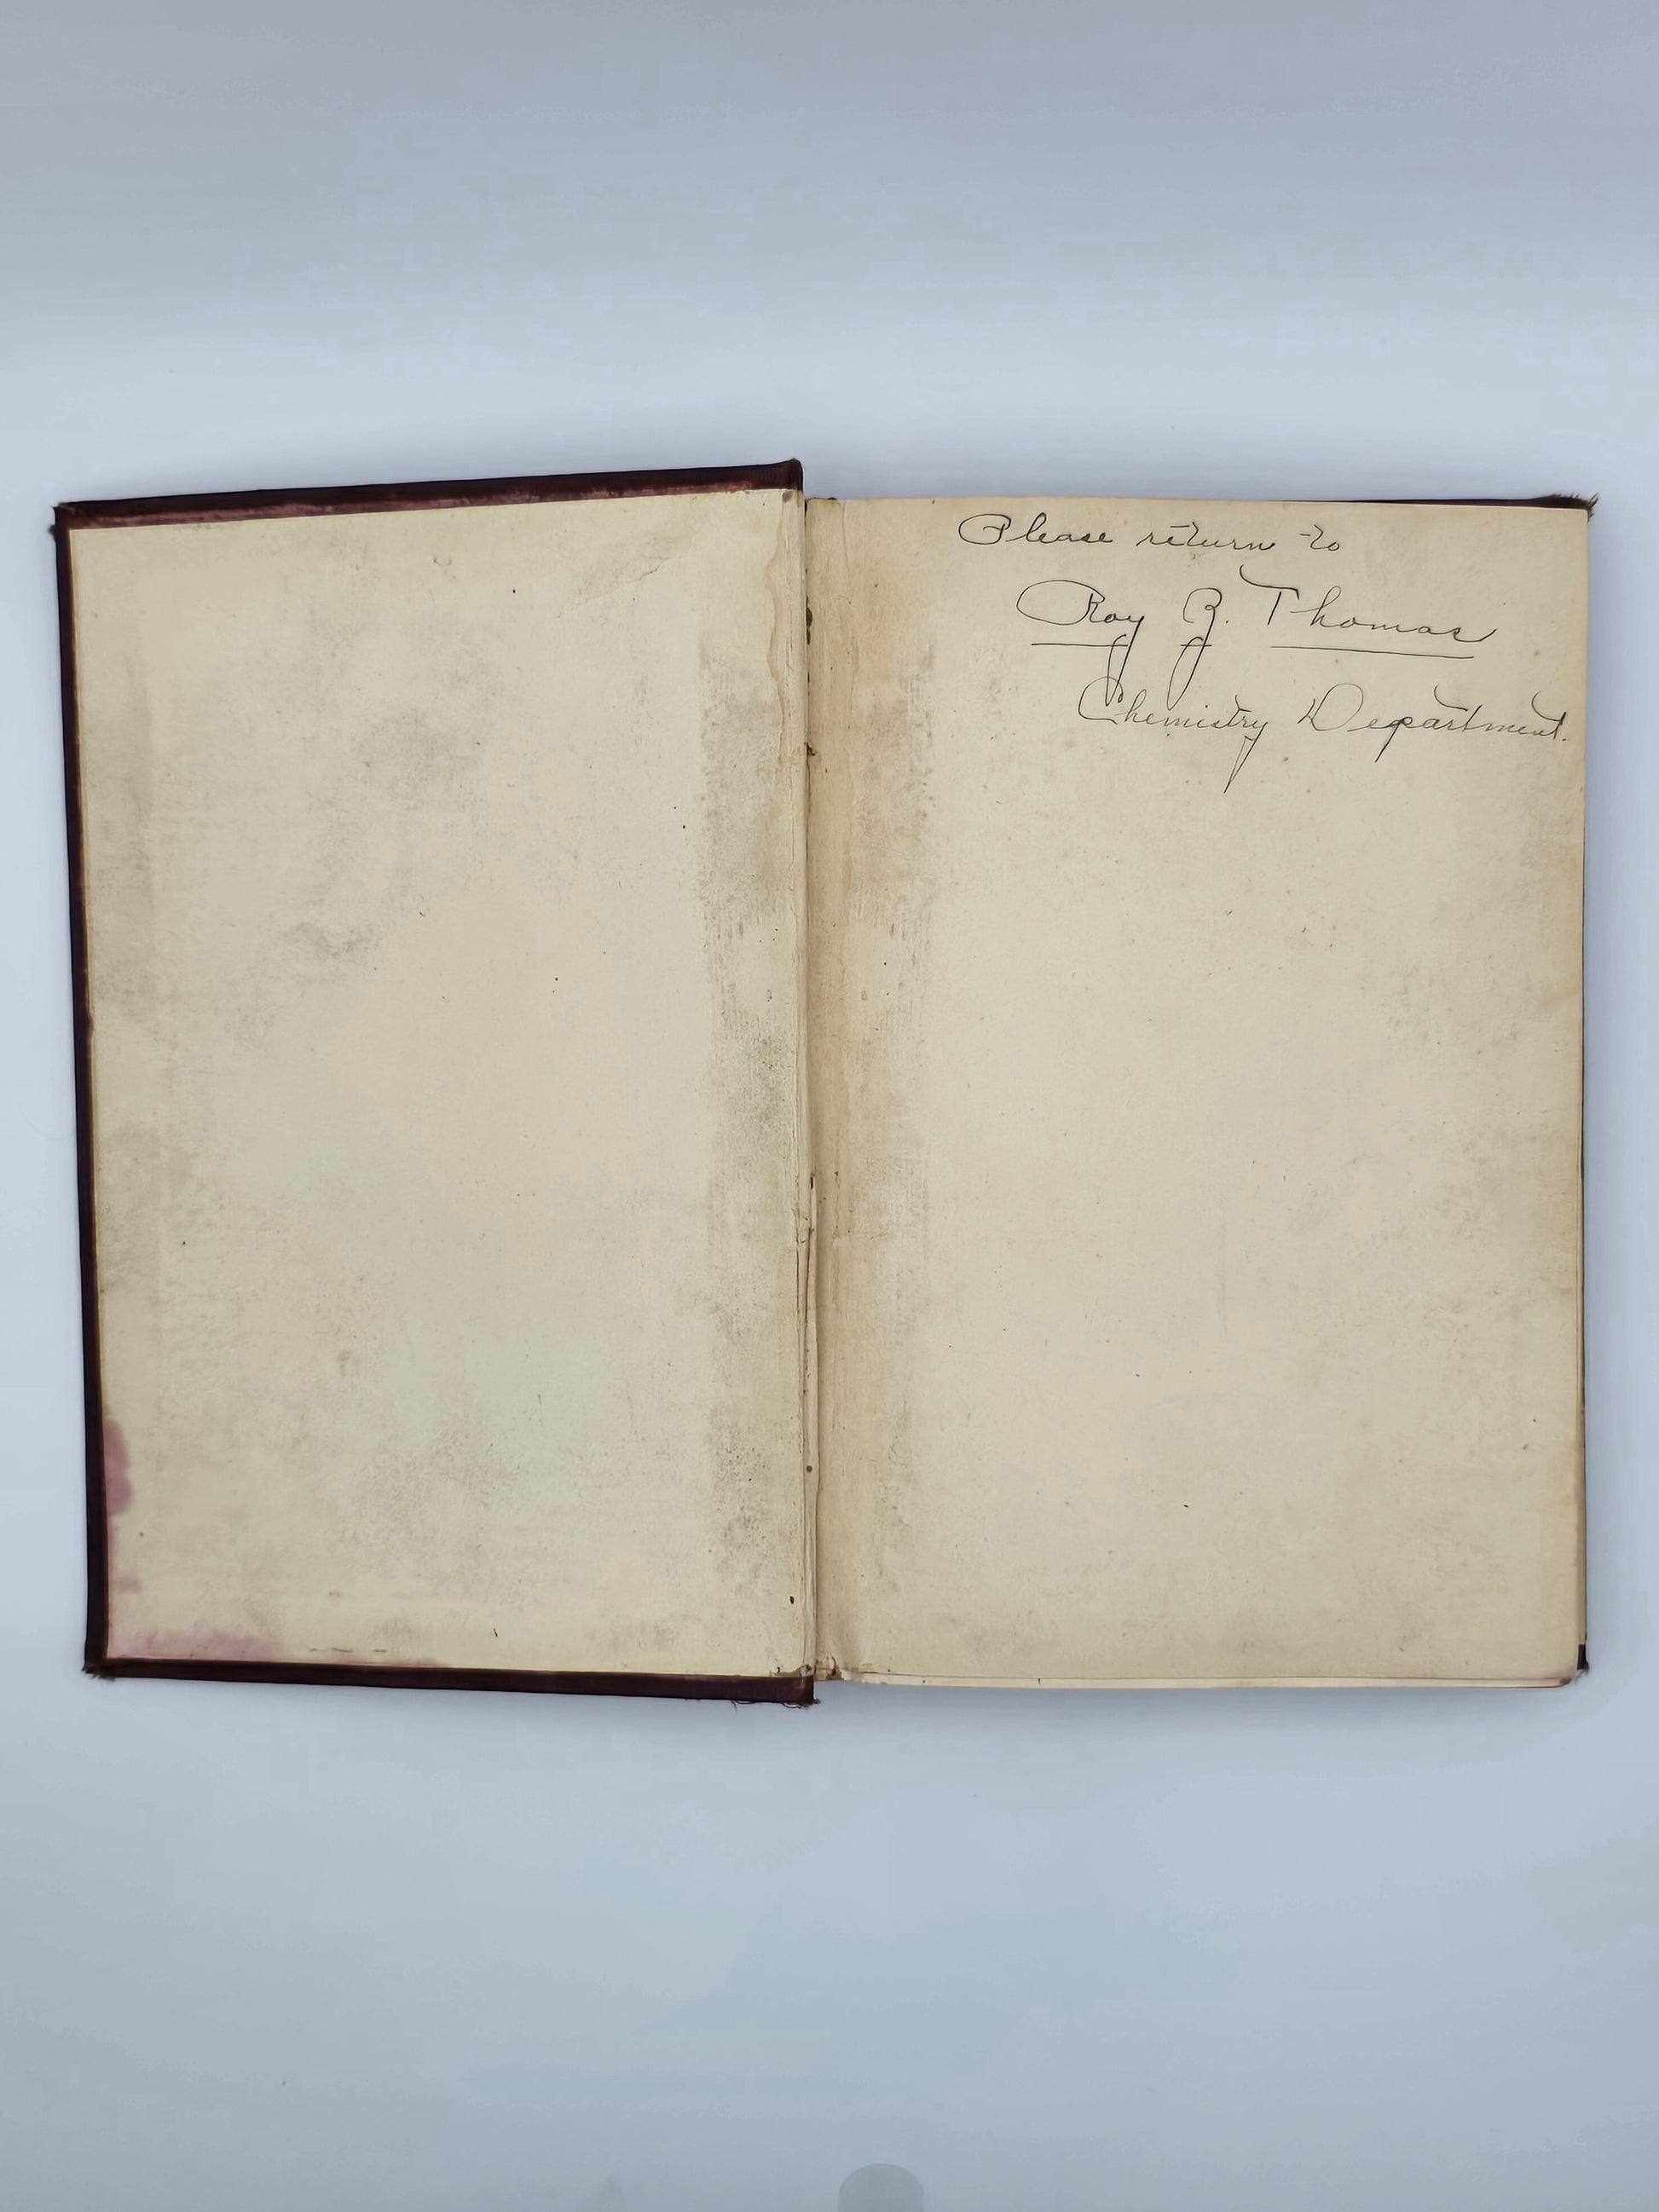 Please return to
Roy Z. Thomas
Chemistry Department.